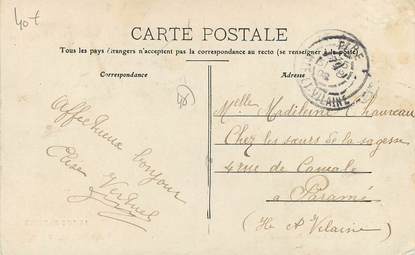 40 f
CARTE POSTALE
Tous les pays étrangers n'acceptent pas la correspondance au recto (se renseigner à la poste)
Correspondance
Adresse
40
ET-VILAINE
Affectueux bonjour
Melle Madeleine
Chez les sœurs de la sagesse
4 rue de
à Paramé
(Ile et Vilaine)